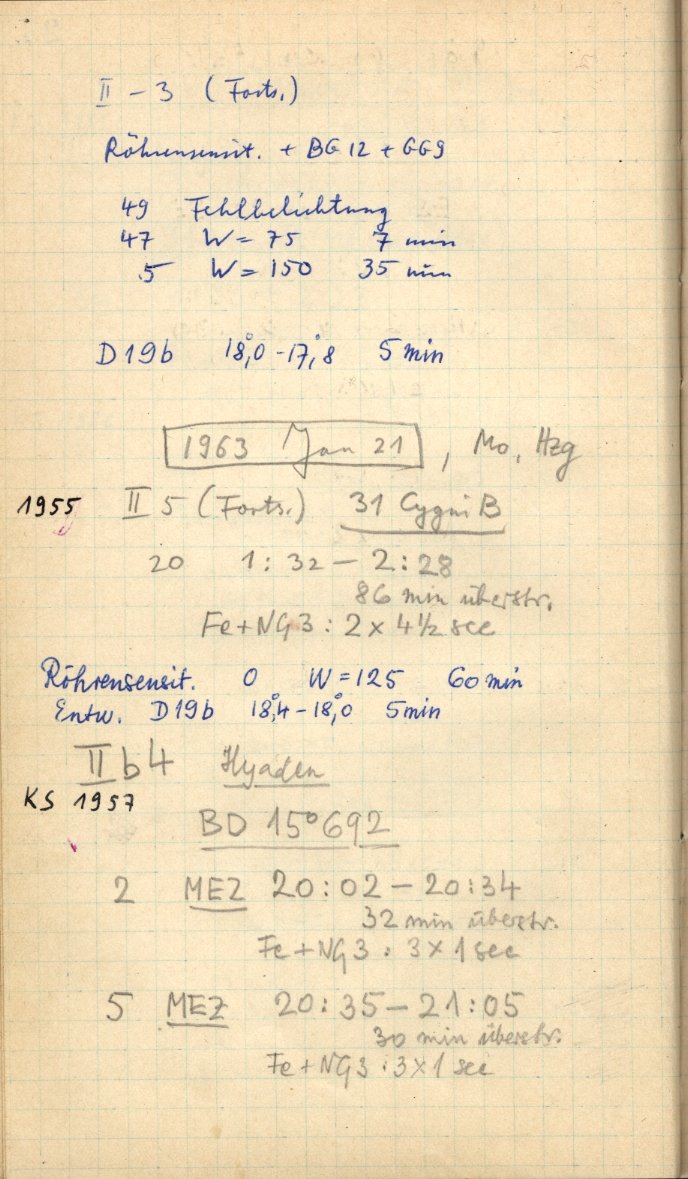 II - 3 (Forts.)
Röhrensensit. + BG 12 + GG9
49 Fehlbelichtung
47 W = 75 7 min
5 W = 150 35 min
D19b 18,°0 - 17,°8 5 min
1963 Jan 21, Mo, Hzg
1955 II 5 (Forts.) 31 Cygni B
20 1:32 - 2:28
86 min überstr.
Fe+NG3: 2 x 4 1/2 sec
Röhrensensit. 0 W = 125 60 min
Entw. D19b 18,°4 - 18,°0 5 min
II b 4 Hyaden
KS 1957
BD 15°692
2 MEZ 20:02 - 20:34
32 min überstr.
Fe+NG3: 3 x 1 sec
5 MEZ 20:35 - 21:05
30 min überstr.
Fe+NG3: 3 x 1 sec